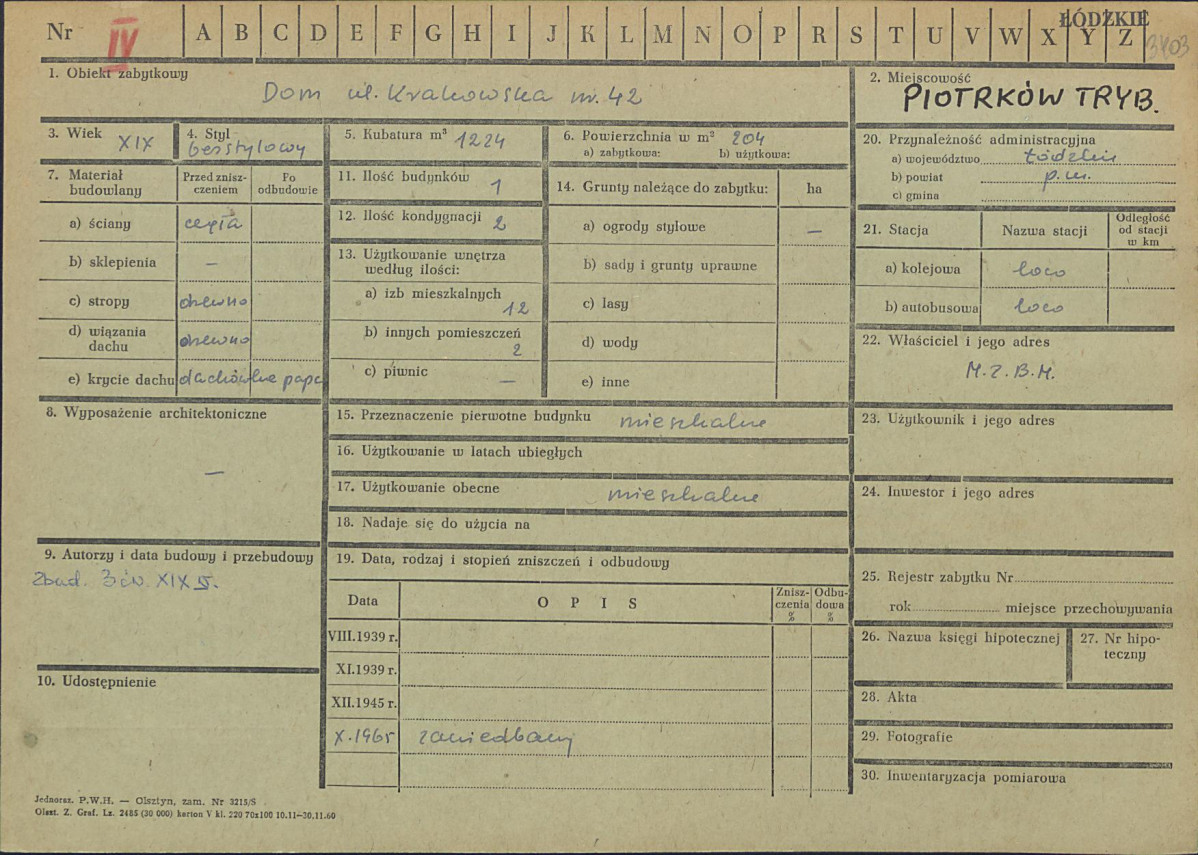 Nr IV A B C D E F G H I J K L M N O P R S T U V W X Y Z ŁÓDZKIE 3403
1. Obiekt zabytkowy
Dom ul. Krakowska nr. 42
2. Miejscowość
PIOTRKÓW TRYB.
3. Wiek XIX
4. Styl
bezstylowy
5. Kubatura m³ 1224
6. Powierzchnia w m² 204
a) zabytkowa: b) użytkowa:
7. Materiał budowlany
Przed znisz-
czeniem
Po
odbudowie
a) ściany cegła
b) sklepienia —
c) stropy drewno
d) wiązania
dachu drewno
e) krycie dachu dachówka papa
8. Wyposażenie architektoniczne
—
9. Autorzy i data budowy i przebudowy
Zbud. 3 ćw. XIX w.
10. Udostępnienie
11. Ilość budynków 1
12. Ilość kondygnacji 2
13. Użytkowanie wnętrza
według ilości:
a) izb mieszkalnych
12
b) innych pomieszczeń
2
c) piwnic —
14. Grunty należące do zabytku: ha
a) ogrody stylowe —
b) sady i grunty uprawne
c) lasy
d) wody
e) inne
15. Przeznaczenie pierwotne budynku mieszkalne
16. Użytkowanie w latach ubiegłych
17. Użytkowanie obecne mieszkalne
18. Nadaje się do użycia na
19. Data, rodzaj i stopień zniszczeń i odbudowy
Data O P I S
Znisz-
czenia
%
Odbu-
dowa
%
VIII.1939 r.
XI.1939 r.
XII.1945 r.
X.1965 zaniedbany
20. Przynależność administracyjna
a) województwo Łódzkie
b) powiat p.m.
c) gmina
21. Stacja Nazwa stacji
Odległość
od stacji
w km
a) kolejowa loco
b) autobusowa loco
22. Właściciel i jego adres
M.Z.B.M.
23. Użytkownik i jego adres
24. Inwestor i jego adres
25. Rejestr zabytku Nr
rok miejsce przechowywania
26. Nazwa księgi hipotecznej
27. Nr hipo-
teczny
28. Akta
29. Fotografie
30. Inwentaryzacja pomiarowa
Jednoraz. P.W.H. — Olsztyn, zam. Nr 3215/S
Olszt. Z. Graf. Lz. 2485 (30 000) karton V kl. 220 70x100 10.11—30.11.60